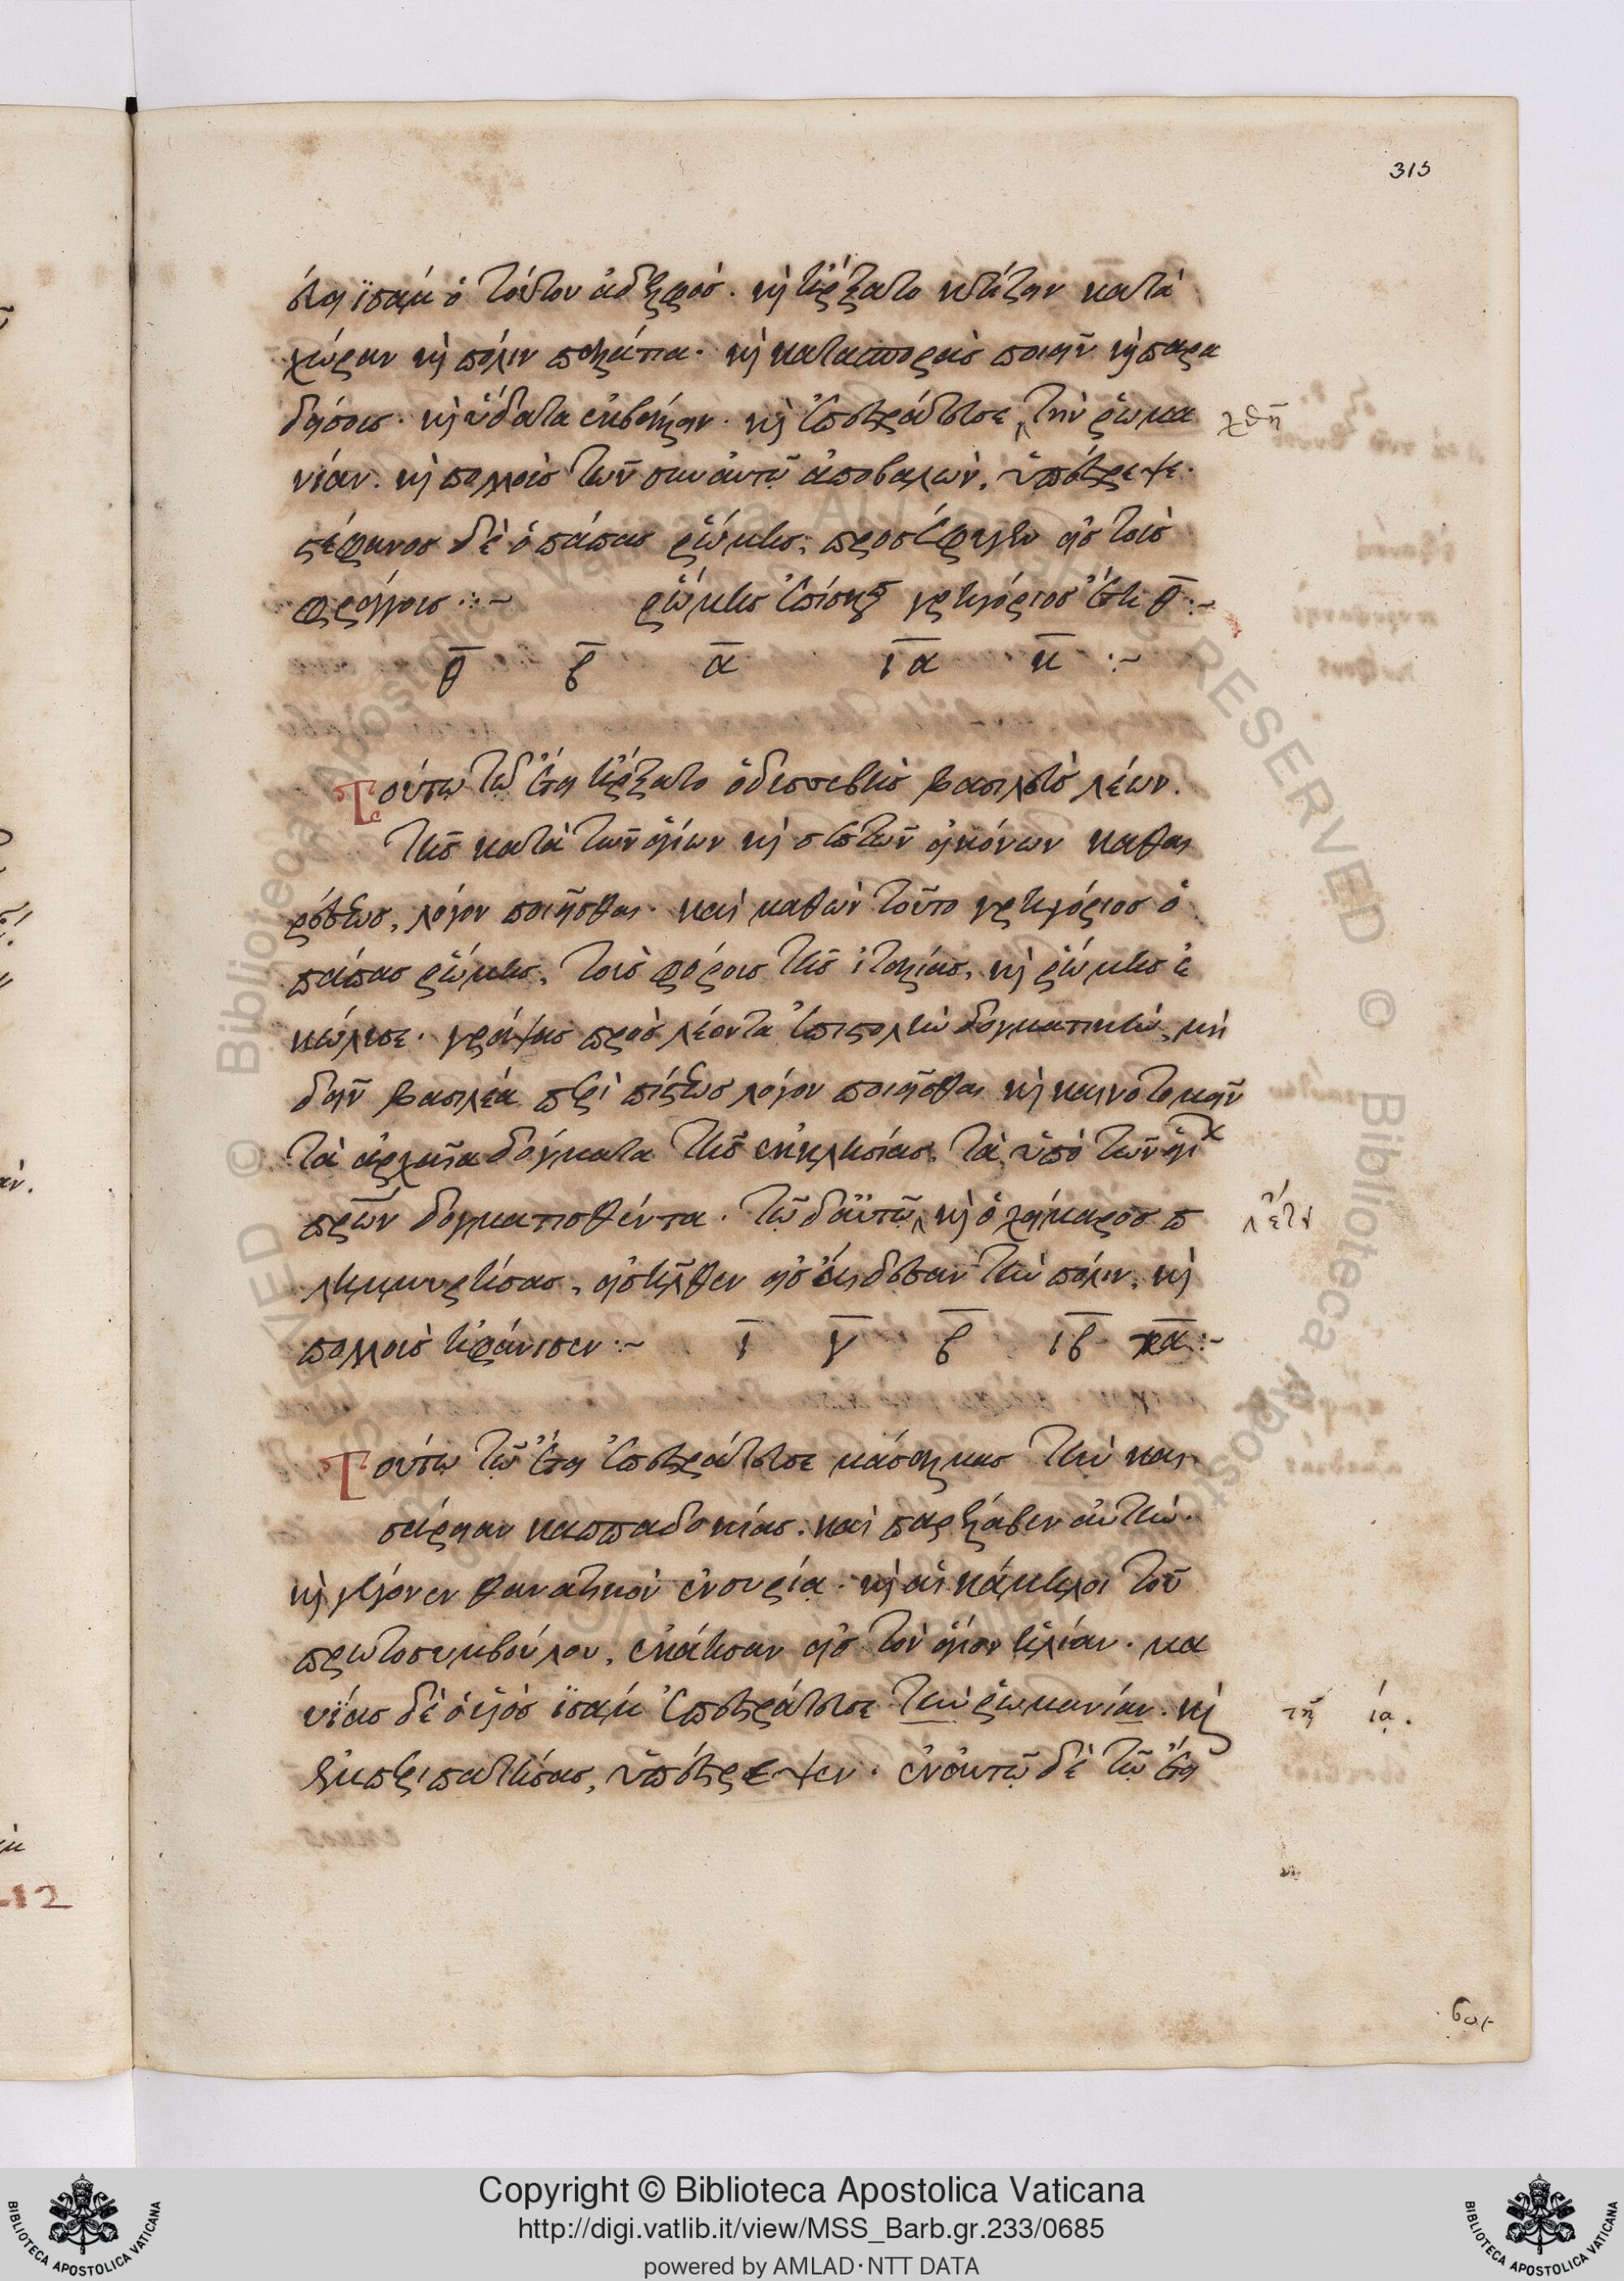 315
ἔτει ϊσὰμ ὁ τούτου ἀδελφός. καὶ ἤρξατο κτίζειν κατὰ
χώραν καὶ πόλιν παλάτια. καὶ κατασπορὰς ποιεῖν καὶ παρα
δείσους. καὶ ὕδατα ἐκβάλλειν. καὶ ἐπεστράτευσε τὴν ῥωμα
νίαν. καὶ πολλοὺς τῶν σὺν αὐτῷ ἀποβαλὼν, ὑπέστρεψε.
στέφανος δὲ ὁ πάπας ῥώμης, προσέφυγεν εἰς τοὺς
φράγγους :~ ῥώμης ἐπίσκοπ γρηγόριος ἔτη θ :~
θ β α ια κ :~
Τούτῳ τῷ ἔτει ἤρξατο ὁ δυσσεβὴς βασιλεὺς λέων.
τῆς κατὰ τῶν ἁγίων καὶ σεπτῶν εἰκόνων καθαι
ρέσεως, λόγον ποιεῖσθαι. καὶ μαθὼν τοῦτο γρηγόριος ὁ
πάπας ῥώμης, τοὺς φόρους τῆς ἰταλίας, καὶ ῥώμης ἐ
κώλυσε. γράψας πρὸς λέοντα ἐπιστολὴν δογματικὴν, μὴ
δεῖν βασιλέα περὶ πίστεως λόγον ποιεῖσθαι καὶ καινοτομεῖν
τὰ ἀρχαῖα δόγματα τῆς ἐκκλησίας, τὰ ὑπὸ τῶν ἁγί
πρων δογματισθέντα. τῷ δ' αὐτῷ καὶ ὁ χείμαρος π
λημμυρήσας, εἰσῆλθεν εἰς ἔδεσαν τὴν πόλιν, καὶ
πολλοὺς ἠφάνισεν :~ ι γ β ιβ κα :~
Τούτῳ τῷ ἔτει ἐπεστράτευσε μάσαλμας τὴν και
σάρειαν καππαδοκίας. καὶ παρέλαβεν αὐτὴν.
καὶ γέγονεν θανατικὸν ἐν συρίᾳ. καὶ αἱ κάμηλοι τοῦ
πρωτοσυμβούλου, ἐκάησαν εἰς τὸν ἅγιον ἠλίαν. μα
υΐας δὲ ὁ υἱὸς ϊσὰμ ἐπεστράτευσε τὴν ῥωμανίαν. καὶ
ἐκπεριπατήσας, ὑπέστρεψεν. ἐν αὐτῷ δὲ τῷ ἔτει
ἔτει
τῆ ια.
212
Copyright © Biblioteca Apostolica Vaticana
http://digi.vatlib.it/view/MSS_Barb.gr.233/0685
powered by AMLAD·NTT DATA
BIBLIOTECA APOSTOLICA VATICANA
BIBLIOTECA APOSTOLICA VATICANA